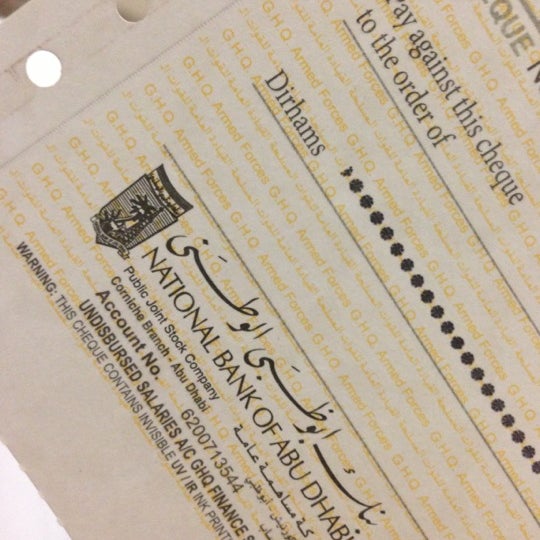 CHEQUE N
Pay against this cheque
to the order of
Dirhams
بنك أبوظبي الوطني
NATIONAL BANK OF ABU DHABI
Public Joint Stock Company
شركة مساهمة عامة
Corniche Branch - Abu Dhabi
Account No. 6200713544
UNDISBURSED SALARIES A/C GHQ FINANCE
WARNING: THIS CHEQUE CONTAINS INVISIBLE UV / IR INK PRINT
G.H.Q Armed Forces